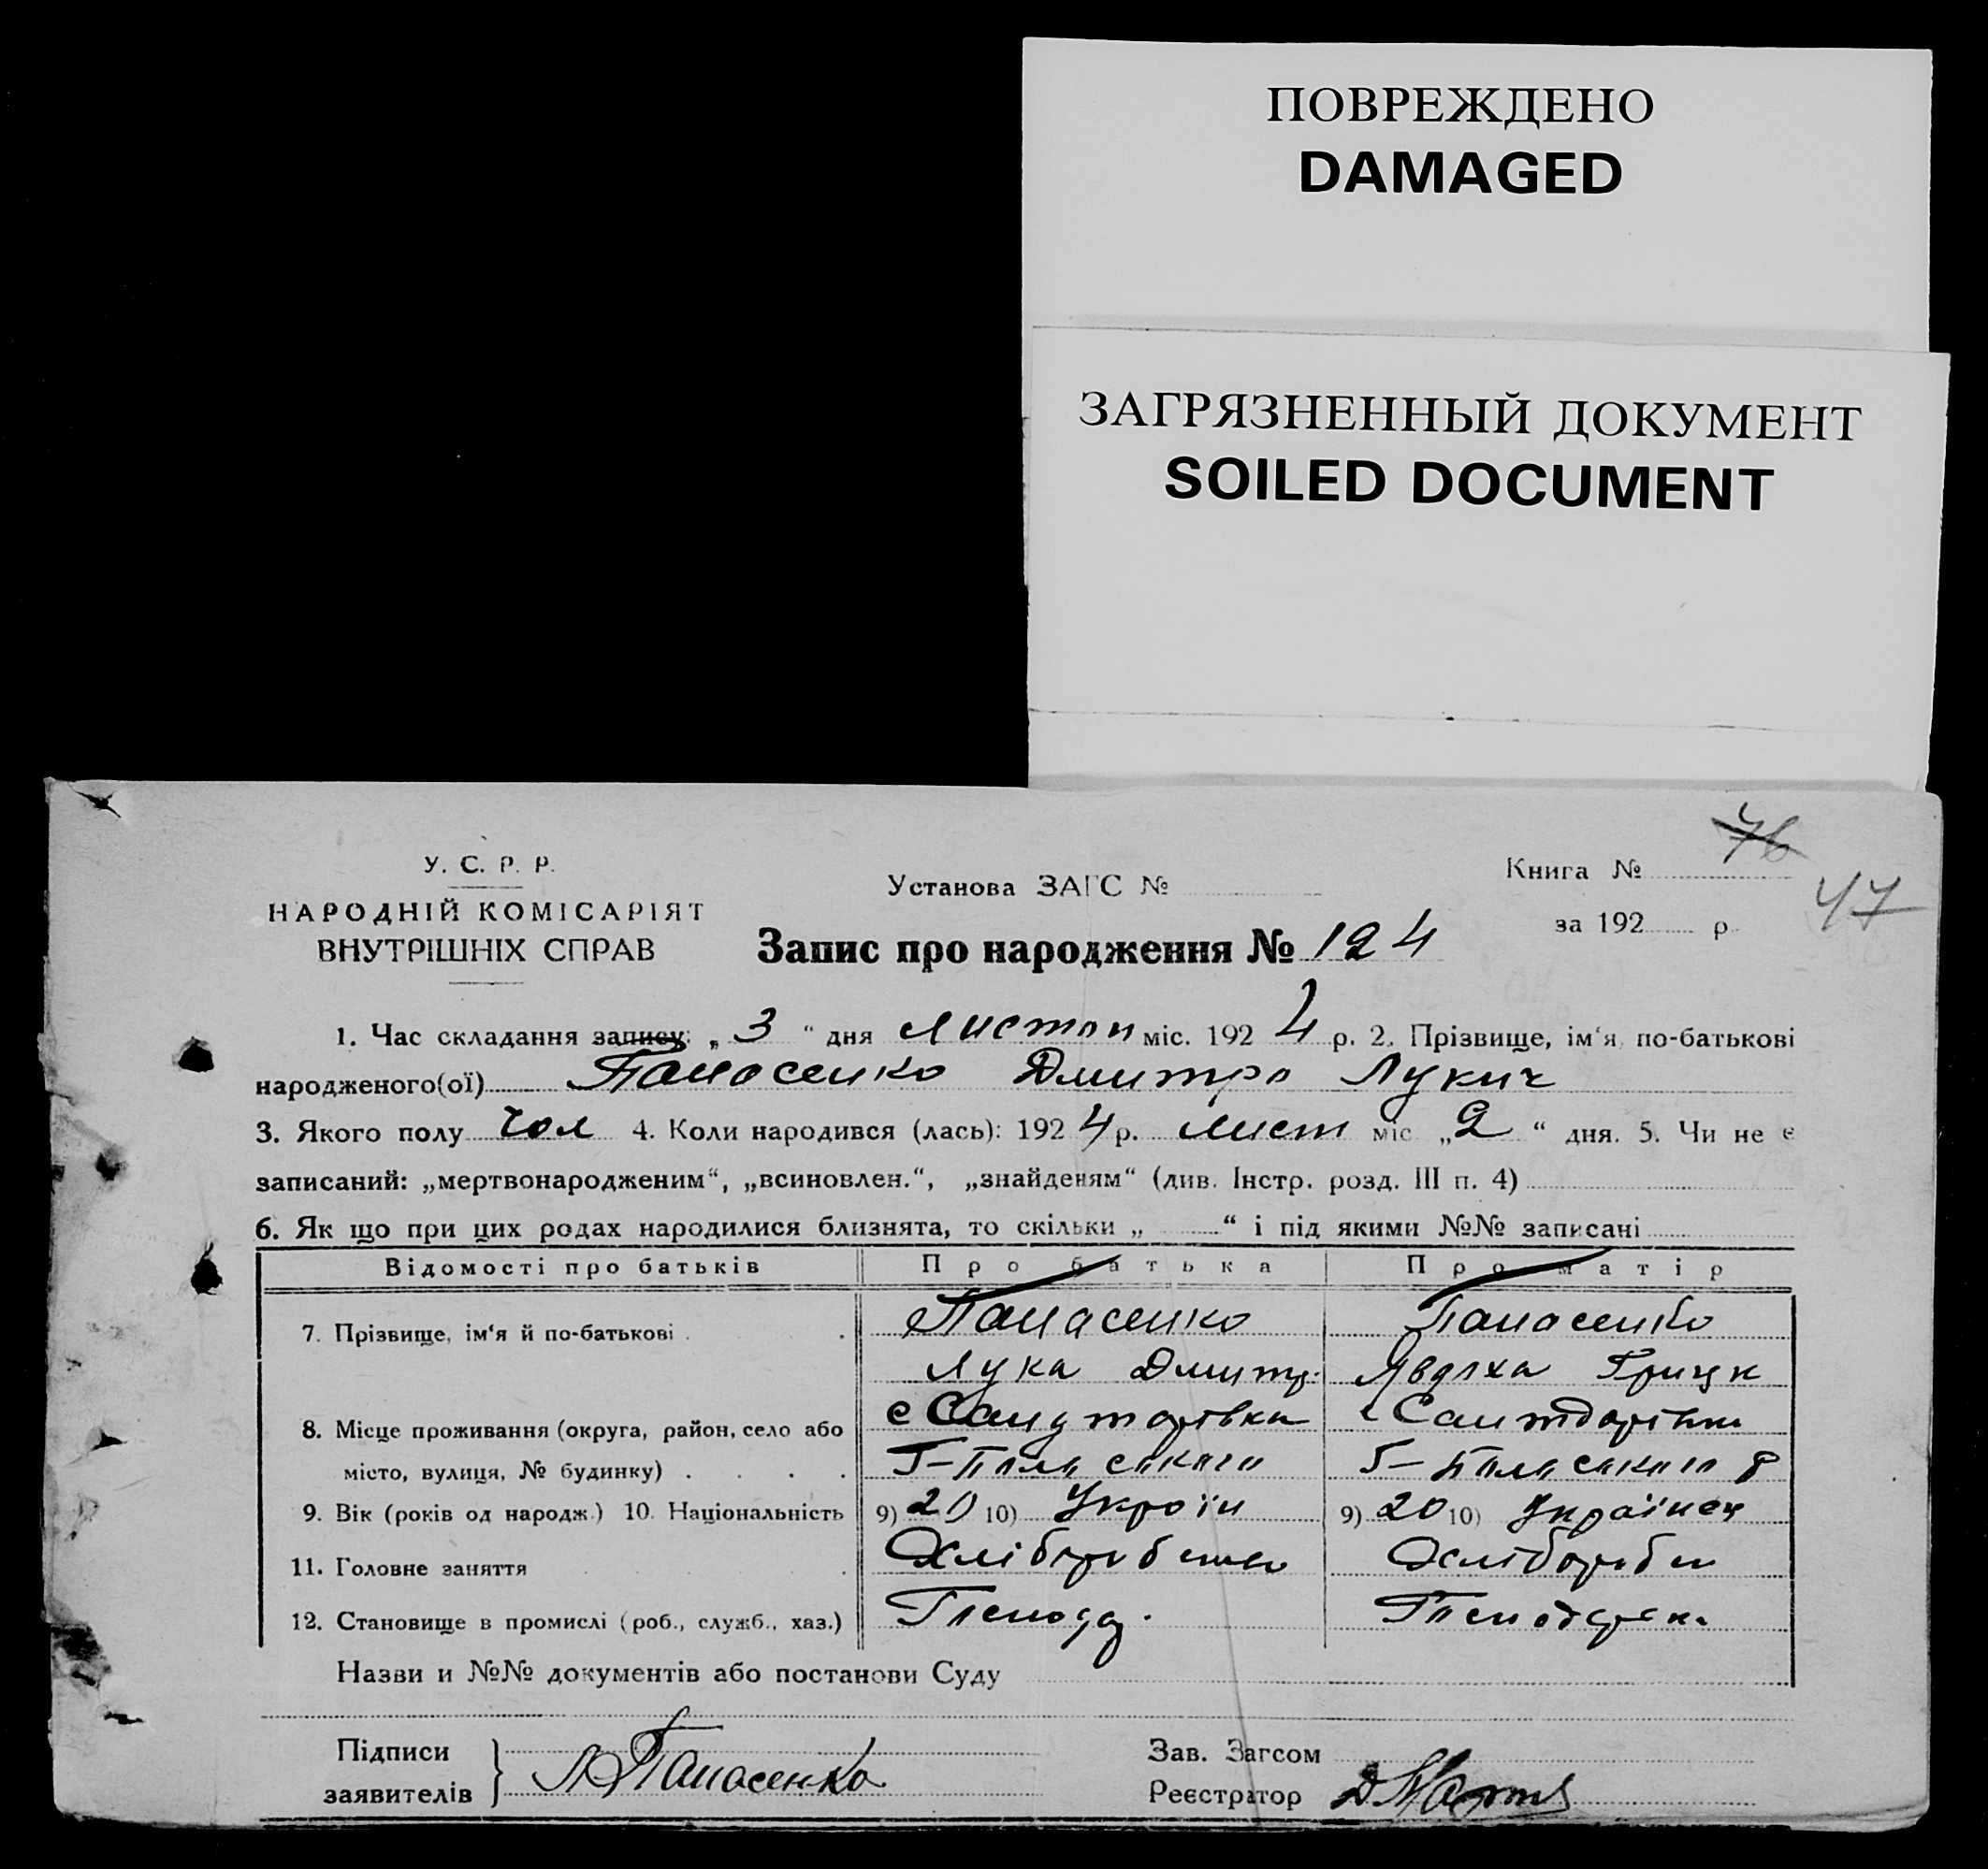 ПОВРЕЖДЕНО
DAMAGED
ЗАГРЯЗНЕННЫЙ ДОКУМЕНТ
SOILED DOCUMENT
76
47
У. С. Р. Р.
НАРОДНІЙ КОМІСАРІЯТ
ВНУТРІШНІХ СПРАВ
Установа ЗАГС №
Книга №
за 192 р
Запис про народження № 124
1. Час складання запису: „ 3 “ дня Листоп міс. 192 4 р. 2. Прізвище, ім‘я, по-батькові
народженого(ої) Панасенко Дмитро Лукич
3. Якого полу чол 4. Коли народився (лась): 192 4 р. лист міс „ 2 “ дня. 5. Чи не є
записаний: „мертвонародженим“, „всиновлен.“, „знайденям“ (див. Інстр. розд. III п. 4)
6. Як що при цих родах народилися близнята, то скільки „ “ і під якими №№ записані
Відомості про батьків Про батька Про матір
7. Прізвище, ім‘я й по-батькові Панасенко Панасенко
Лука Дмитр. Явдоха Грицк
8. Місце проживання (округа, район, село або с
місто, вулиця, № будинку)
9. Вік (років од народж.) 10. Національність 9) 20 10) Україн 9) 20 10) Українец
11. Головне заняття Хлібороб
12. Становище в промислі (роб., служб., хаз.) Господ.
Назви и №№ документів або постанови Суду
Підписи
заявителів
Л Панасенко
Зав. Загсом
Реєстратор